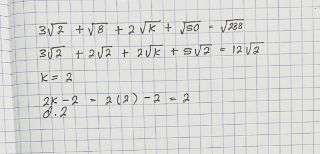 3√2 + √8 + 2√k + √50 = √288
3√2 + 2√2 + 2√k + 5√2 = 12√2
k = 2
2k - 2 = 2(2) - 2 = 2
d. 2